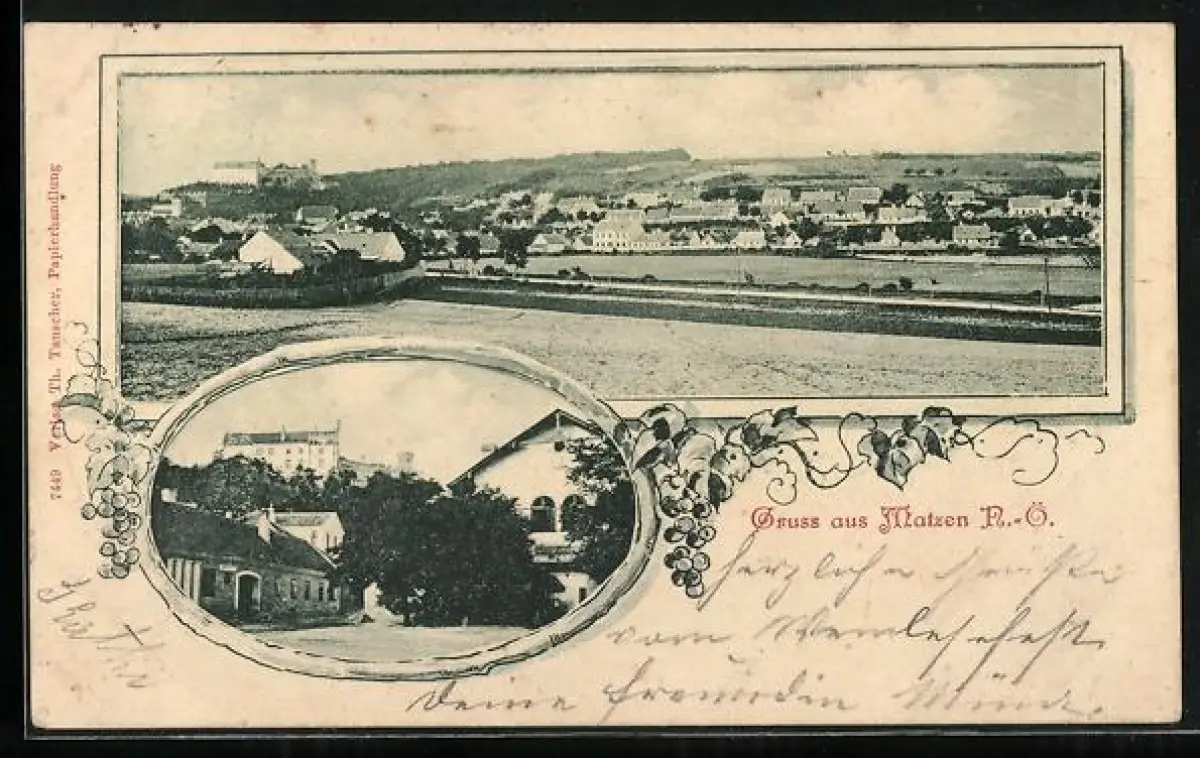 7449 Verlag Th. Tauscher, Papierhandlung
Gruss aus Matzen N.-Ö.
Herzliche Grüße
vom Weinlesefest
Deine Freundin